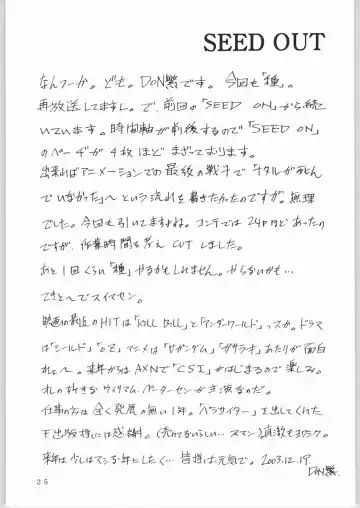 SEED OUT
なんつーか。ども。DON繁です。今回も「種」。
再放送してますし。で、前回の「SEED ON」から続
いています。時間軸が前後するので「SEED ON」
のページが4枚ほどまざっております。
出来ればアニメーションでの最後の戦予で「ナタルが死んで
でいなかった」〜という流れを書きたかったのですが。無理
でした。今回も引いてますよね。コンテでは24Pほどあったの
ですが、作業時間を考えCUTしました。
あと1回くらい「種」やるかもしれません。やらないかも…
てきと〜でスイマセン。
映画の最近のHITは「KILL BILL」と「アンダーワールド」っスか。ドラマ
は「シールド」「OZ」アニメは「ガンダム」「ガサラキ」あたりが面白
れぇ〜。来年からはAXNで「CSI」がはじまるので楽しみ。
オレの好きなウィリアム・ピーターセンが主演なのだ。
仕事の方は全く発展の無い1年。「ヘラサイター」を出してくれた
出版様には感謝。(売れてないらしい…スマン)
来年は少しはマシな年にしたく…皆様は元気で。2003.12.19
DON繁.
25